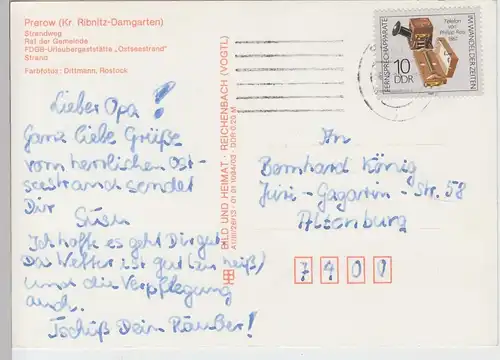 Prerow (Kr. Ribnitz-Damgarten)
Strandweg
Rat der Gemeinde
FDGB-Urlaubergaststätte „Ostseestrand"
Strand
Farbfotos: Dittmann, Rostock
Lieber Opa!
Ganz liebe Grüße
vom herrlichen Ost-
seestrand sendet
Dir
Ich hoffe es geht Dir gut.
Das Wetter ist gut (zu heiß)
und die Verpflegung
auch.
Tschüß Dein Räuber!
BILD UND HEIMAT · REICHENBACH (VOGTL)
FERNSPRECHAPPARATE
IM WANDEL DER ZEITEN
Telefon
von
Philipp Reis
1861
10
DDR
An
Bernhard König
Juri-Gagarin-Str. 58
Altenburg
7401